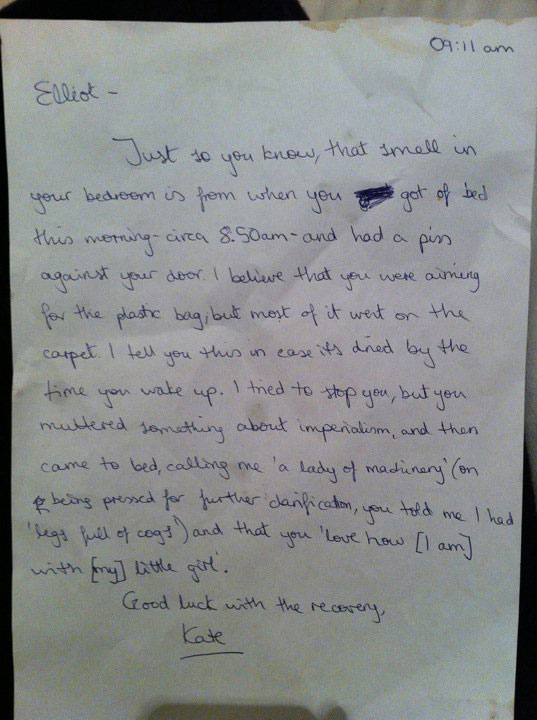 09:11 am
Elliot -
Just so you know, that smell in
your bedroom is from when you got of bed
this morning - circa 8.50am - and had a piss
against your door. I believe that you were aiming
for the plastic bag, but most of it went on the
carpet. I tell you this in case it's dried by the
time you wake up. I tried to stop you, but you
muttered something about imperialism, and then
came to bed, calling me 'a lady of machinery' (on
being pressed for further clarification, you told me I had
'legs full of cogs') and that you 'love how [I am]
with [my] little girl'.
Good luck with the recovery,
Kate